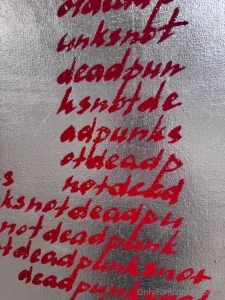 unksnot
deadpun
ksnotde
adpunks
otdeadp
notdead
s
ksnotdeadpu
notdeadpunk
tdeadpunksnot
deadpunk